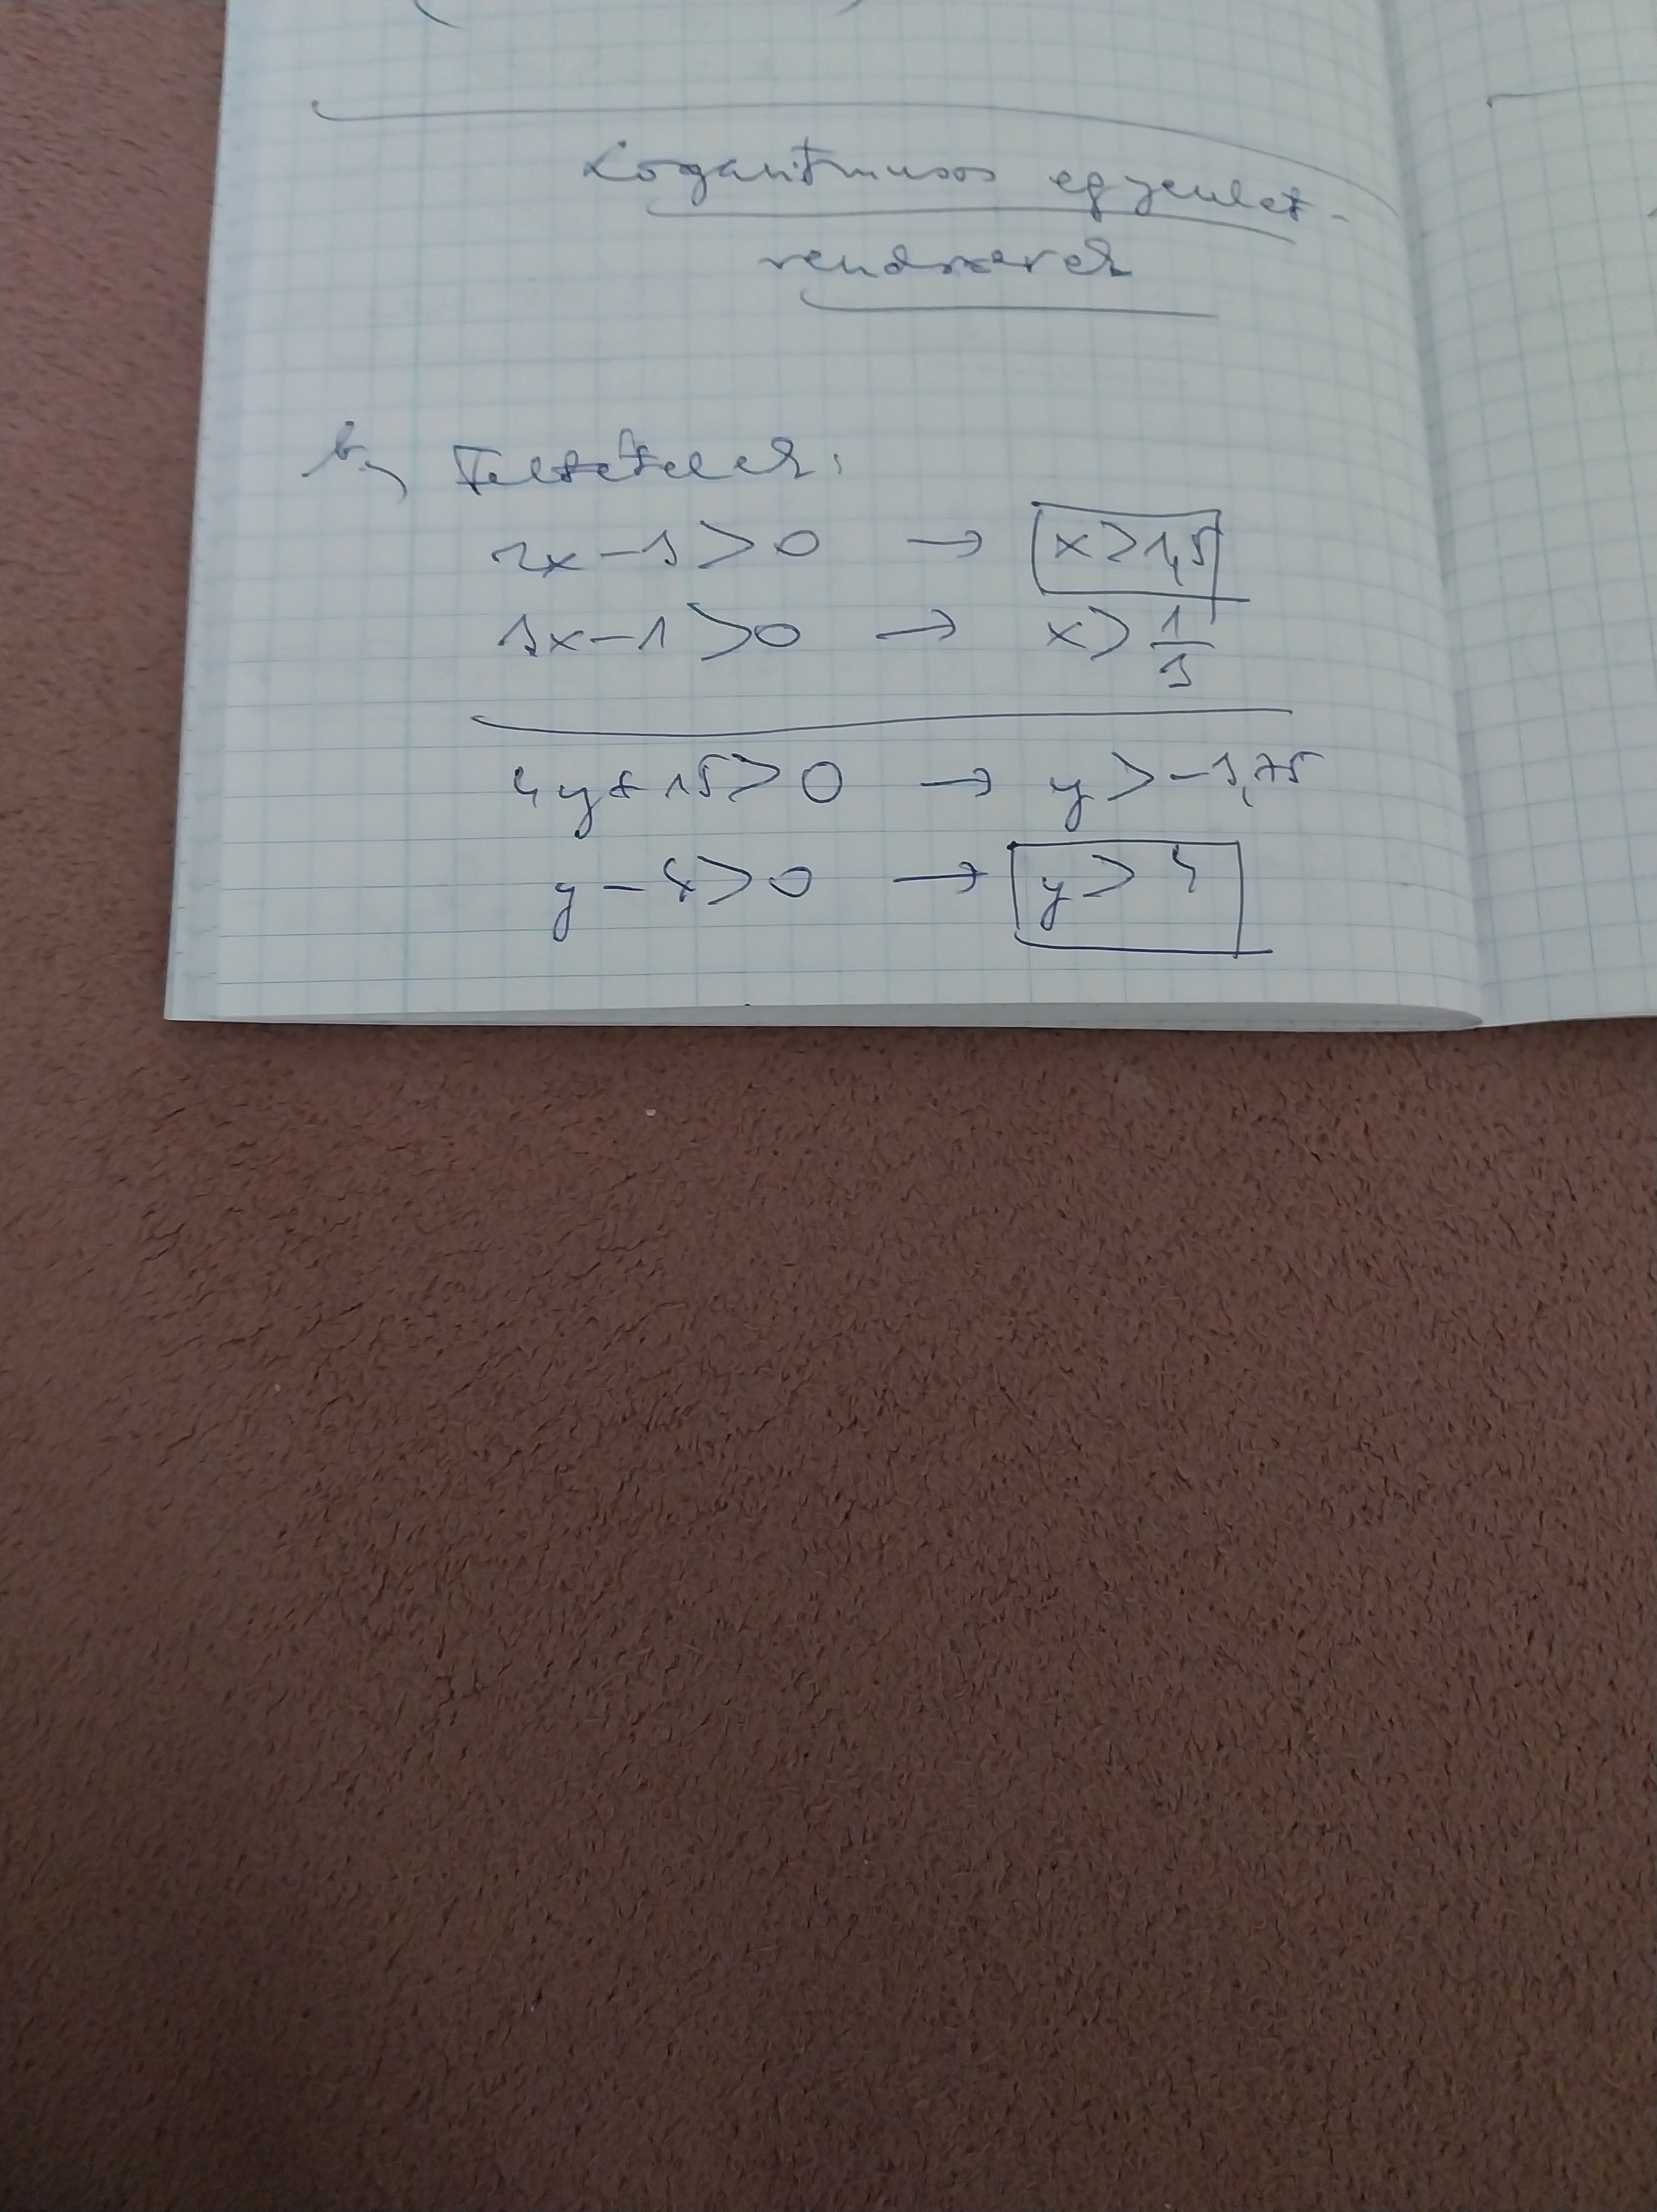 Logaritmusos egyenlet-
rendszerek
b, Feltételek:
2x-3>0 → x>1,5
3x-1>0 → x>1/3
4y+15>0 → y>-3,75
y-4>0 → y>4